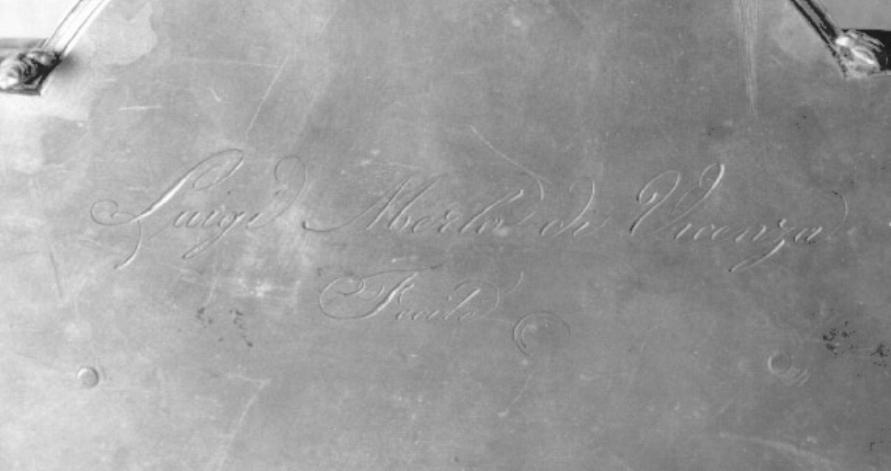 Luigi Merlo di Vicenza
Fecit